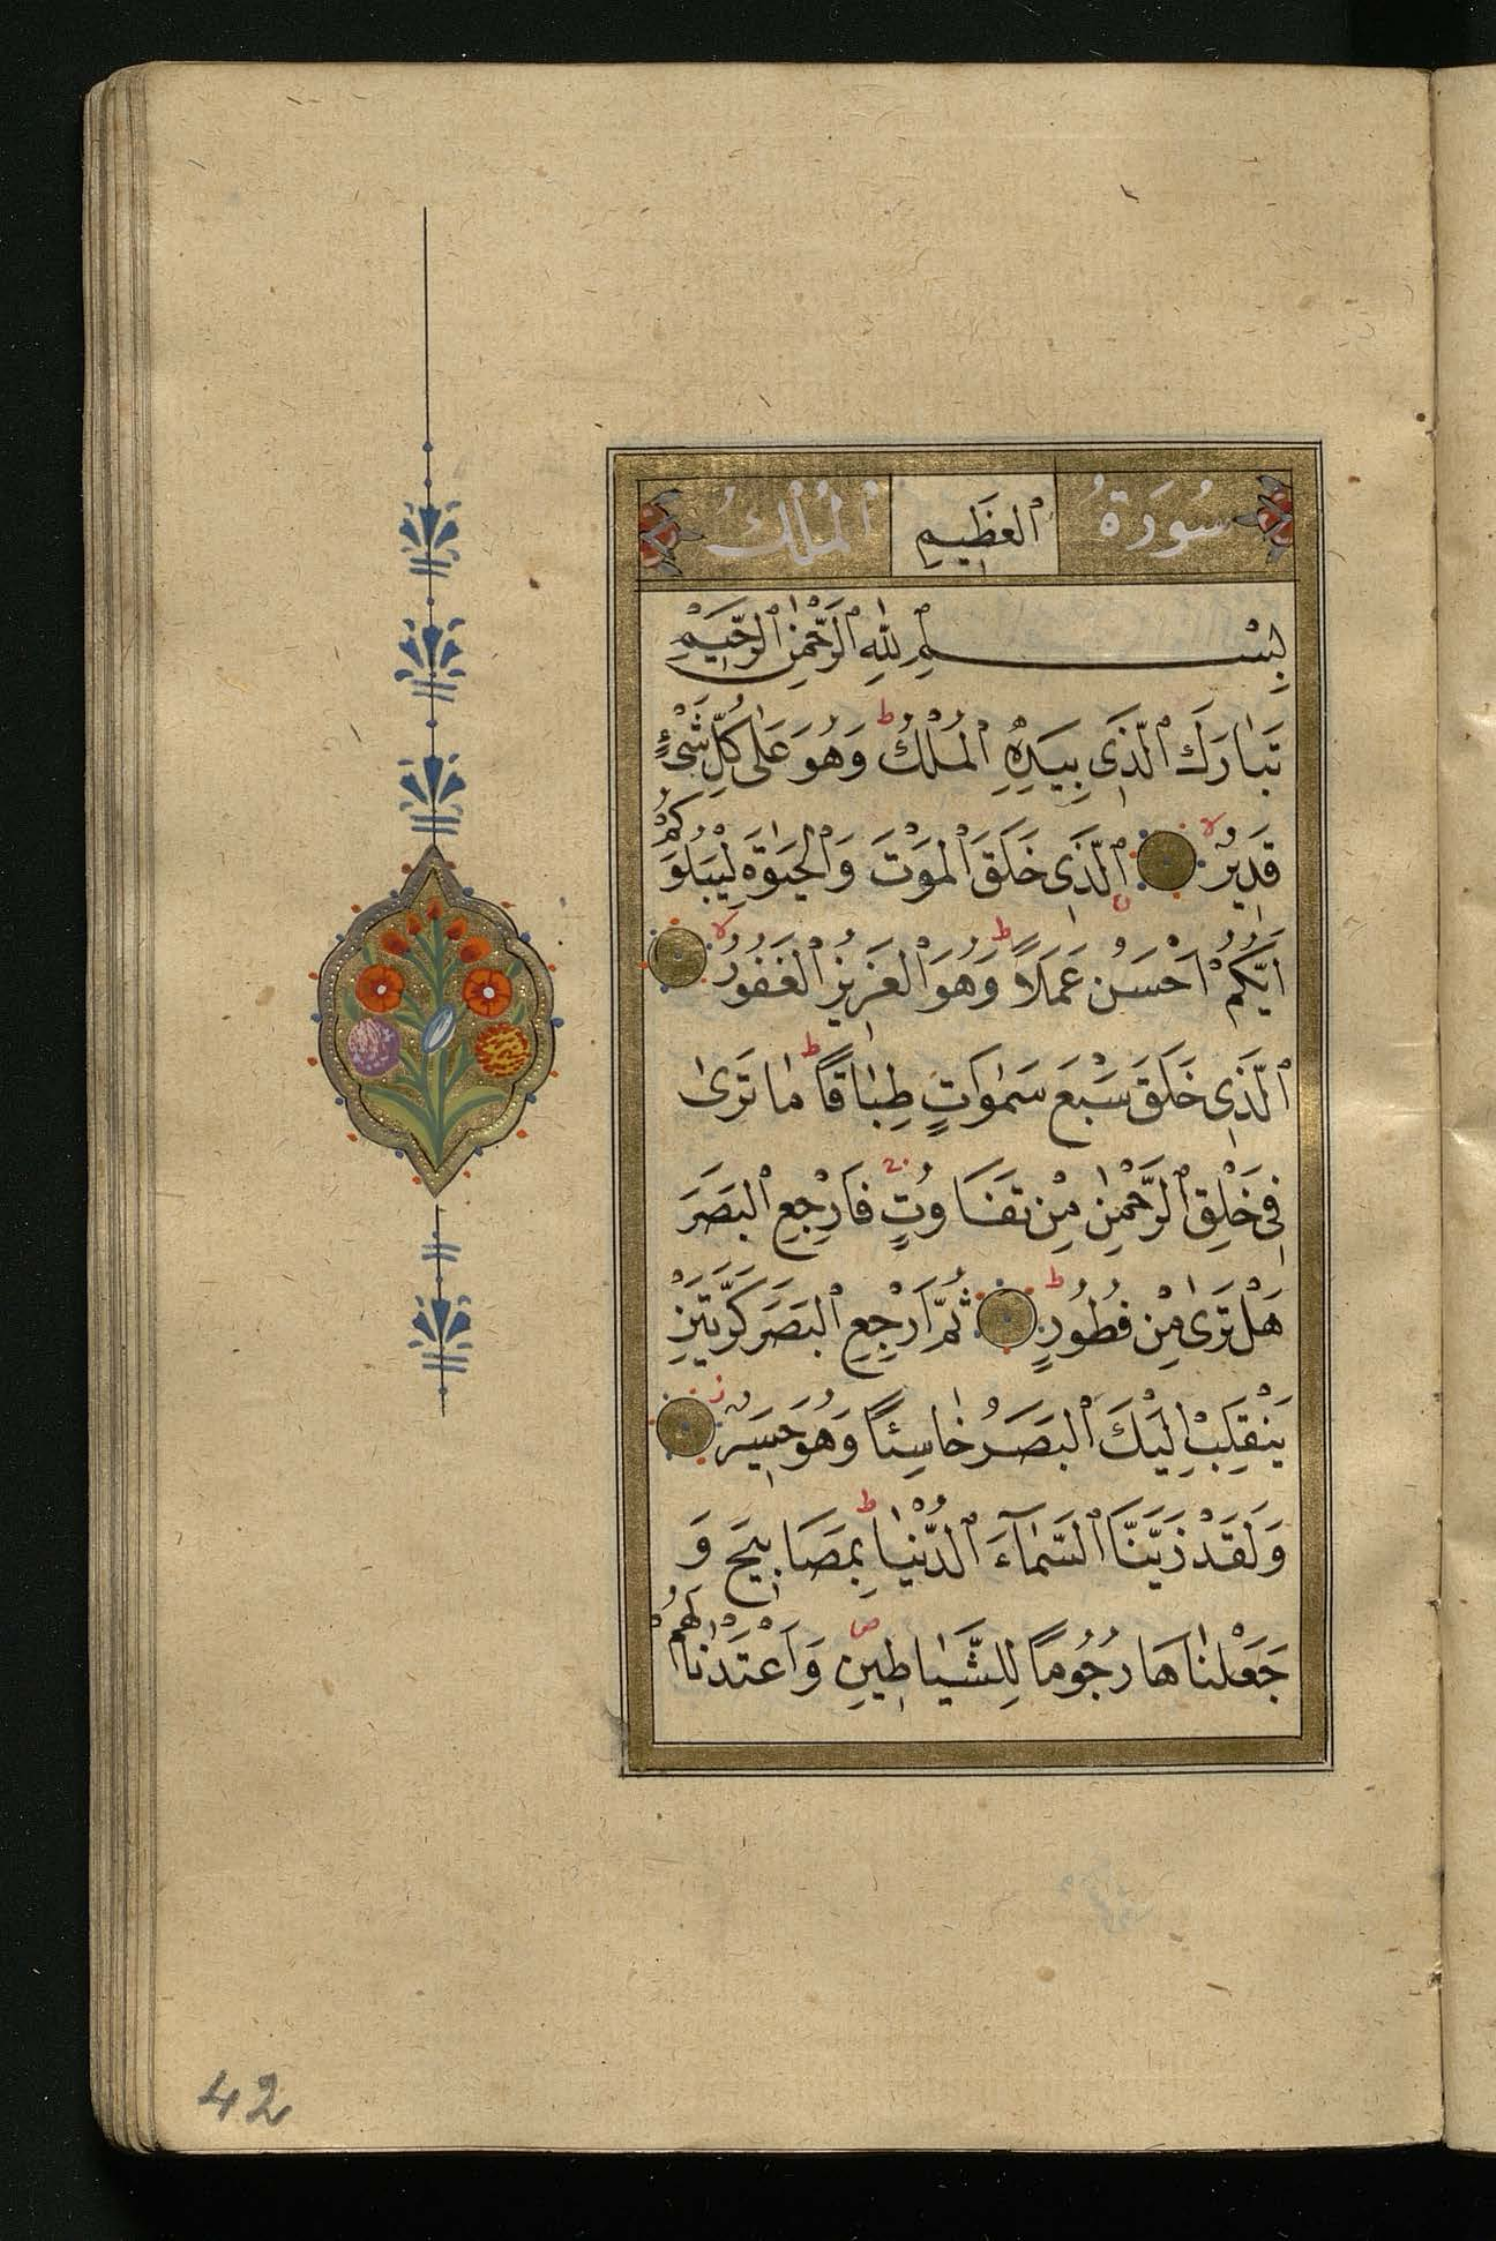 سُورَةُ العَظِيمِ المُلْكُ
بِسْمِ اللّٰهِ الرَّحْمٰنِ الرَّحِيمِ
تَبٰارَكَ الَّذِى بِيَدِهِ الْمُلْكُ ط وَهُوَ عَلٰى كُلِّ شَىْءٍ
قَدِيرٌ لا الَّذِى خَلَقَ الْمَوْتَ وَالْحَيٰوةَ لِيَبْلُوَكُمْ
اَيُّكُمْ اَحْسَنُ عَمَلًا ط وَهُوَ الْعَزِيزُ الْغَفُورُ لا
الَّذِى خَلَقَ سَبْعَ سَمٰوَاتٍ طِبٰاقًا ط مٰا تَرىٰ
فِى خَلْقِ الرَّحْمٰنِ مِنْ تَفَاوُتٍ فَارْجِعِ الْبَصَرَ
هَلْ تَرىٰ مِنْ فُطُورٍ ط ثُمَّ ارْجِعِ الْبَصَرَ كَرَّتَيْنِ
يَنْقَلِبْ اِلَيْكَ الْبَصَرُ خٰاسِئًا وَهُوَ حَسِيرٌ ز
وَلَقَدْ زَيَّنَّا السَّمٰاءَ الدُّنْيٰا ط بِمَصَابِيحَ وَ
جَعَلْنٰاهَا رُجُومًا لِلشَّيٰاطِينِ ص وَاَعْتَدْنٰا لَهُمْ
42